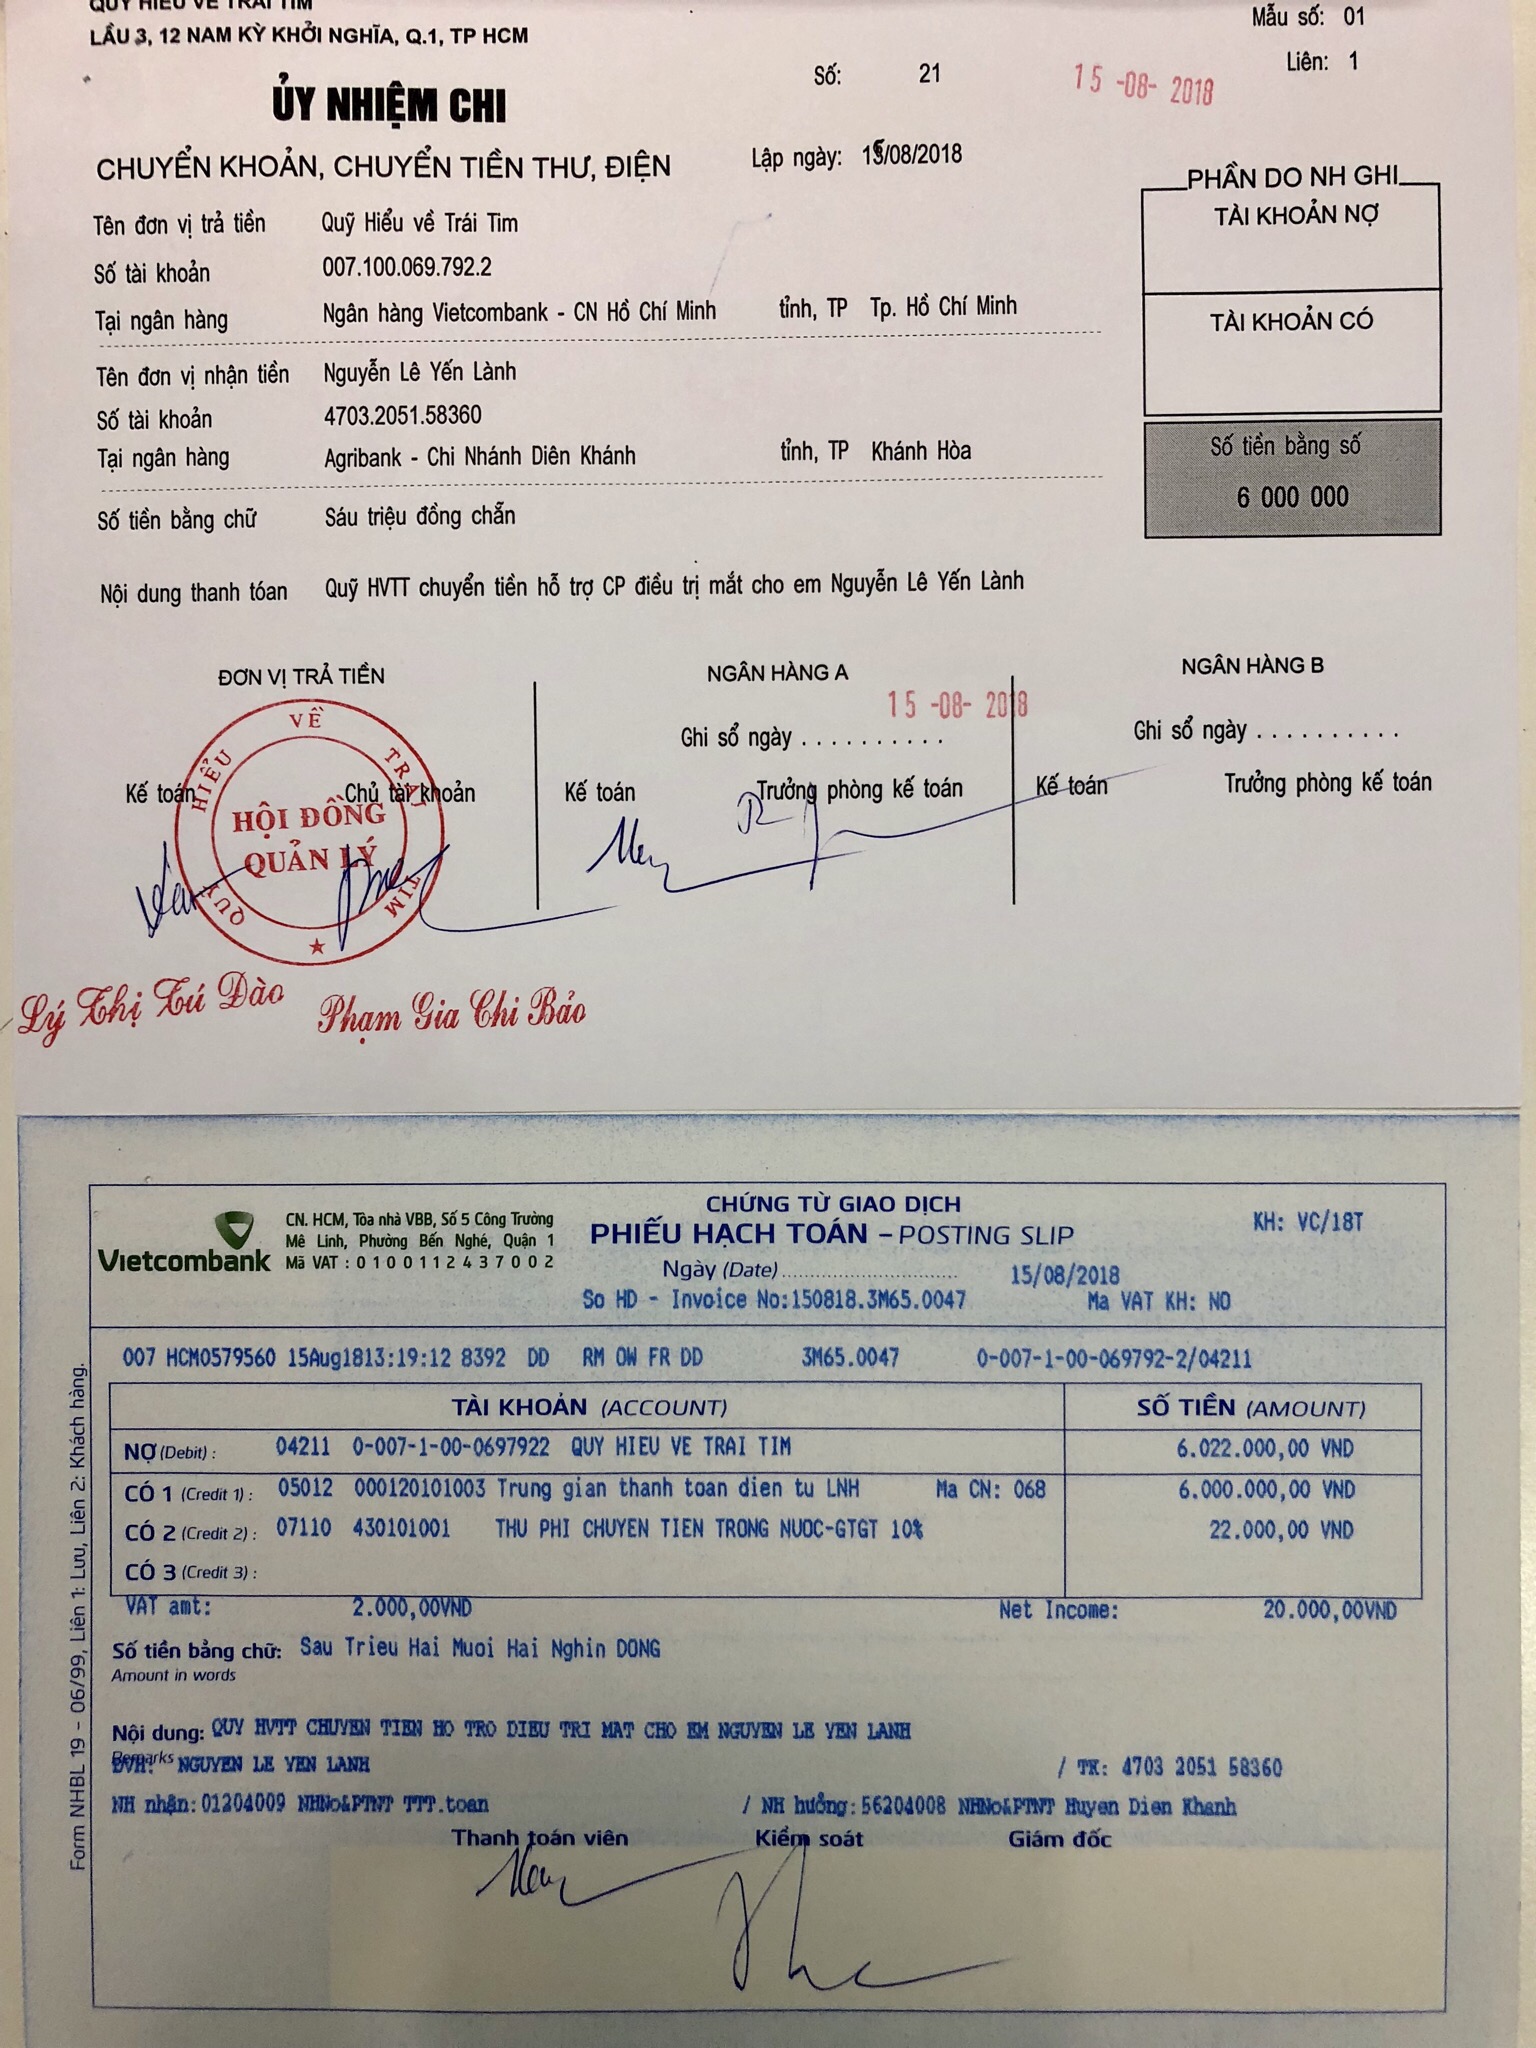 QUỸ HIỂU VỀ TRÁI TIM
LẦU 3, 12 NAM KỲ KHỞI NGHĨA, Q.1, TP HCM
Mẫu số: 01
Liên: 1
Số: 21
15 -08- 2018
ỦY NHIỆM CHI
CHUYỂN KHOẢN, CHUYỂN TIỀN THƯ, ĐIỆN
Lập ngày: 15/08/2018
PHẦN DO NH GHI
TÀI KHOẢN NỢ
TÀI KHOẢN CÓ
Tên đơn vị trả tiền Quỹ Hiểu về Trái Tim
Số tài khoản 007.100.069.792.2
Tại ngân hàng Ngân hàng Vietcombank - CN Hồ Chí Minh tỉnh, TP Tp. Hồ Chí Minh
Tên đơn vị nhận tiền Nguyễn Lê Yến Lành
Số tài khoản 4703.2051.58360
Tại ngân hàng Agribank - Chi Nhánh Diên Khánh tỉnh, TP Khánh Hòa
Số tiền bằng số
6 000 000
Số tiền bằng chữ Sáu triệu đồng chẵn
Nội dung thanh tóan Quỹ HVTT chuyển tiền hỗ trợ CP điều trị mắt cho em Nguyễn Lê Yến Lành
ĐƠN VỊ TRẢ TIỀN NGÂN HÀNG A NGÂN HÀNG B
15 -08- 2018
Ghi sổ ngày .......... Ghi sổ ngày ..........
Kế toán Chủ tài khoản Kế toán Trưởng phòng kế toán Kế toán Trưởng phòng kế toán
QUỸ HIỂU VỀ TRÁI TIM
HỘI ĐỒNG
QUẢN LÝ
Lý Thị Tú Đào Phạm Gia Chi Bảo
Vietcombank
CN. HCM, Tòa nhà VBB, Số 5 Công Trường
Mê Linh, Phường Bến Nghé, Quận 1
Mã VAT : 0 1 0 0 1 1 2 4 3 7 0 0 2
CHỨNG TỪ GIAO DỊCH
PHIẾU HẠCH TOÁN – POSTING SLIP
KH: VC/18T
Ngày (Date) .................. 15/08/2018
So HD - Invoice No:150818.3M65.0047 Ma VAT KH: NO
007 HCM0579560 15Aug1813:19:12 8392 DD RM OW FR DD 3M65.0047 0-007-1-00-069792-2/04211
TÀI KHOẢN (ACCOUNT) SỐ TIỀN (AMOUNT)
NỢ (Debit) : 04211 0-007-1-00-0697922 QUY HIEU VE TRAI TIM 6.022.000,00 VND
CÓ 1 (Credit 1) : 05012 000120101003 Trung gian thanh toan dien tu LNH Ma CN: 068 6.000.000,00 VND
CÓ 2 (Credit 2) : 07110 430101001 THU PHI CHUYEN TIEN TRONG NUOC-GTGT 10% 22.000,00 VND
CÓ 3 (Credit 3) :
VAT amt: 2.000,00VND Net Income: 20.000,00VND
Số tiền bằng chữ: Sau Trieu Hai Muoi Hai Nghin DONG
Amount in words
Nội dung: QUY HVTT CHUYEN TIEN HO TRO DIEU TRI MAT CHO EM NGUYEN LE YEN LANH
Remarks
ĐVH: NGUYEN LE YEN LANH / TK: 4703 2051 58360
NH nhận:01204009 NHNo&PTNT TTT.toan / NH hưởng:56204008 NHNo&PTNT Huyen Dien Khanh
Thanh toán viên Kiểm soát Giám đốc
Form NHBL 19 - 06/99, Liên 1: Lưu, Liên 2: Khách hàng.